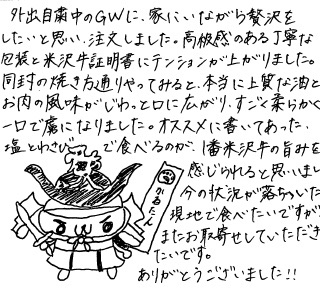 外出自粛中のGWに、家にいながら贅沢を
したいと思い、注文しました。高級感のある丁寧な
包装と米沢牛証明書にテンションが上がりました。
同封の焼き方通りやってみると、本当に上質な油と
お肉の風味がじわっと口に広がり、すごく柔らかく
一口で虜になりました。オススメに書いてあった、
塩とわさびで食べるのが、1番米沢牛の旨みを
感じられると思いまし
今の状況が落ちついた
現地で食べたいですが
またお取寄せしていただき
たいです。
ありがとうございました!!
かねたん